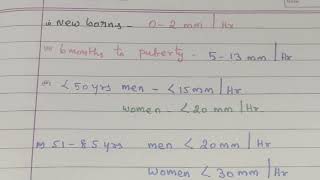 i) new borns - 0-2 mm | Hr
ii) 6 months to puberty - 5-13 mm | Hr
iii) < 50 yrs men - < 15mm | Hr
women - < 20 mm | Hr
51-85 yrs men < 20mm | Hr
Women < 30 mm | Hr